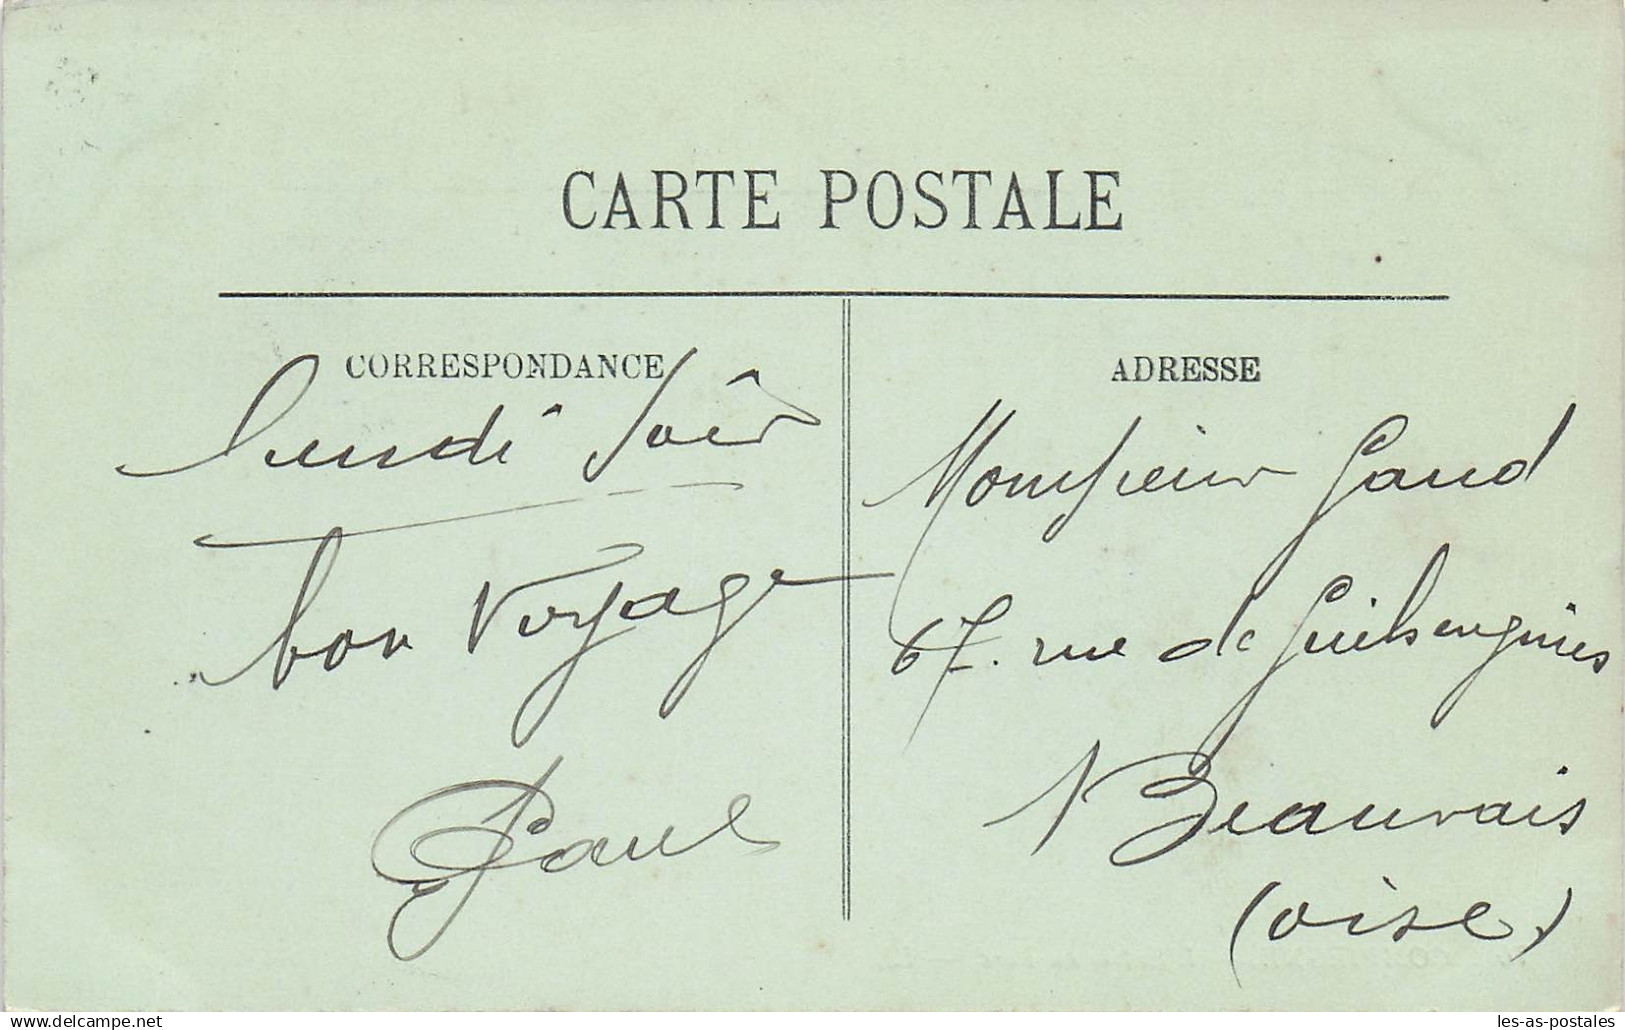 CARTE POSTALE
CORRESPONDANCE
lundi soir
bon voyage
Paul
ADRESSE
Monsieur Gaud
67. rue de
Beauvais
(oise)
www.delcampe.net
les-as-postales